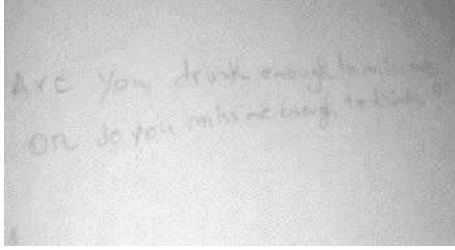 Are you drunk enough to miss me
OR do you miss me enough to drink?